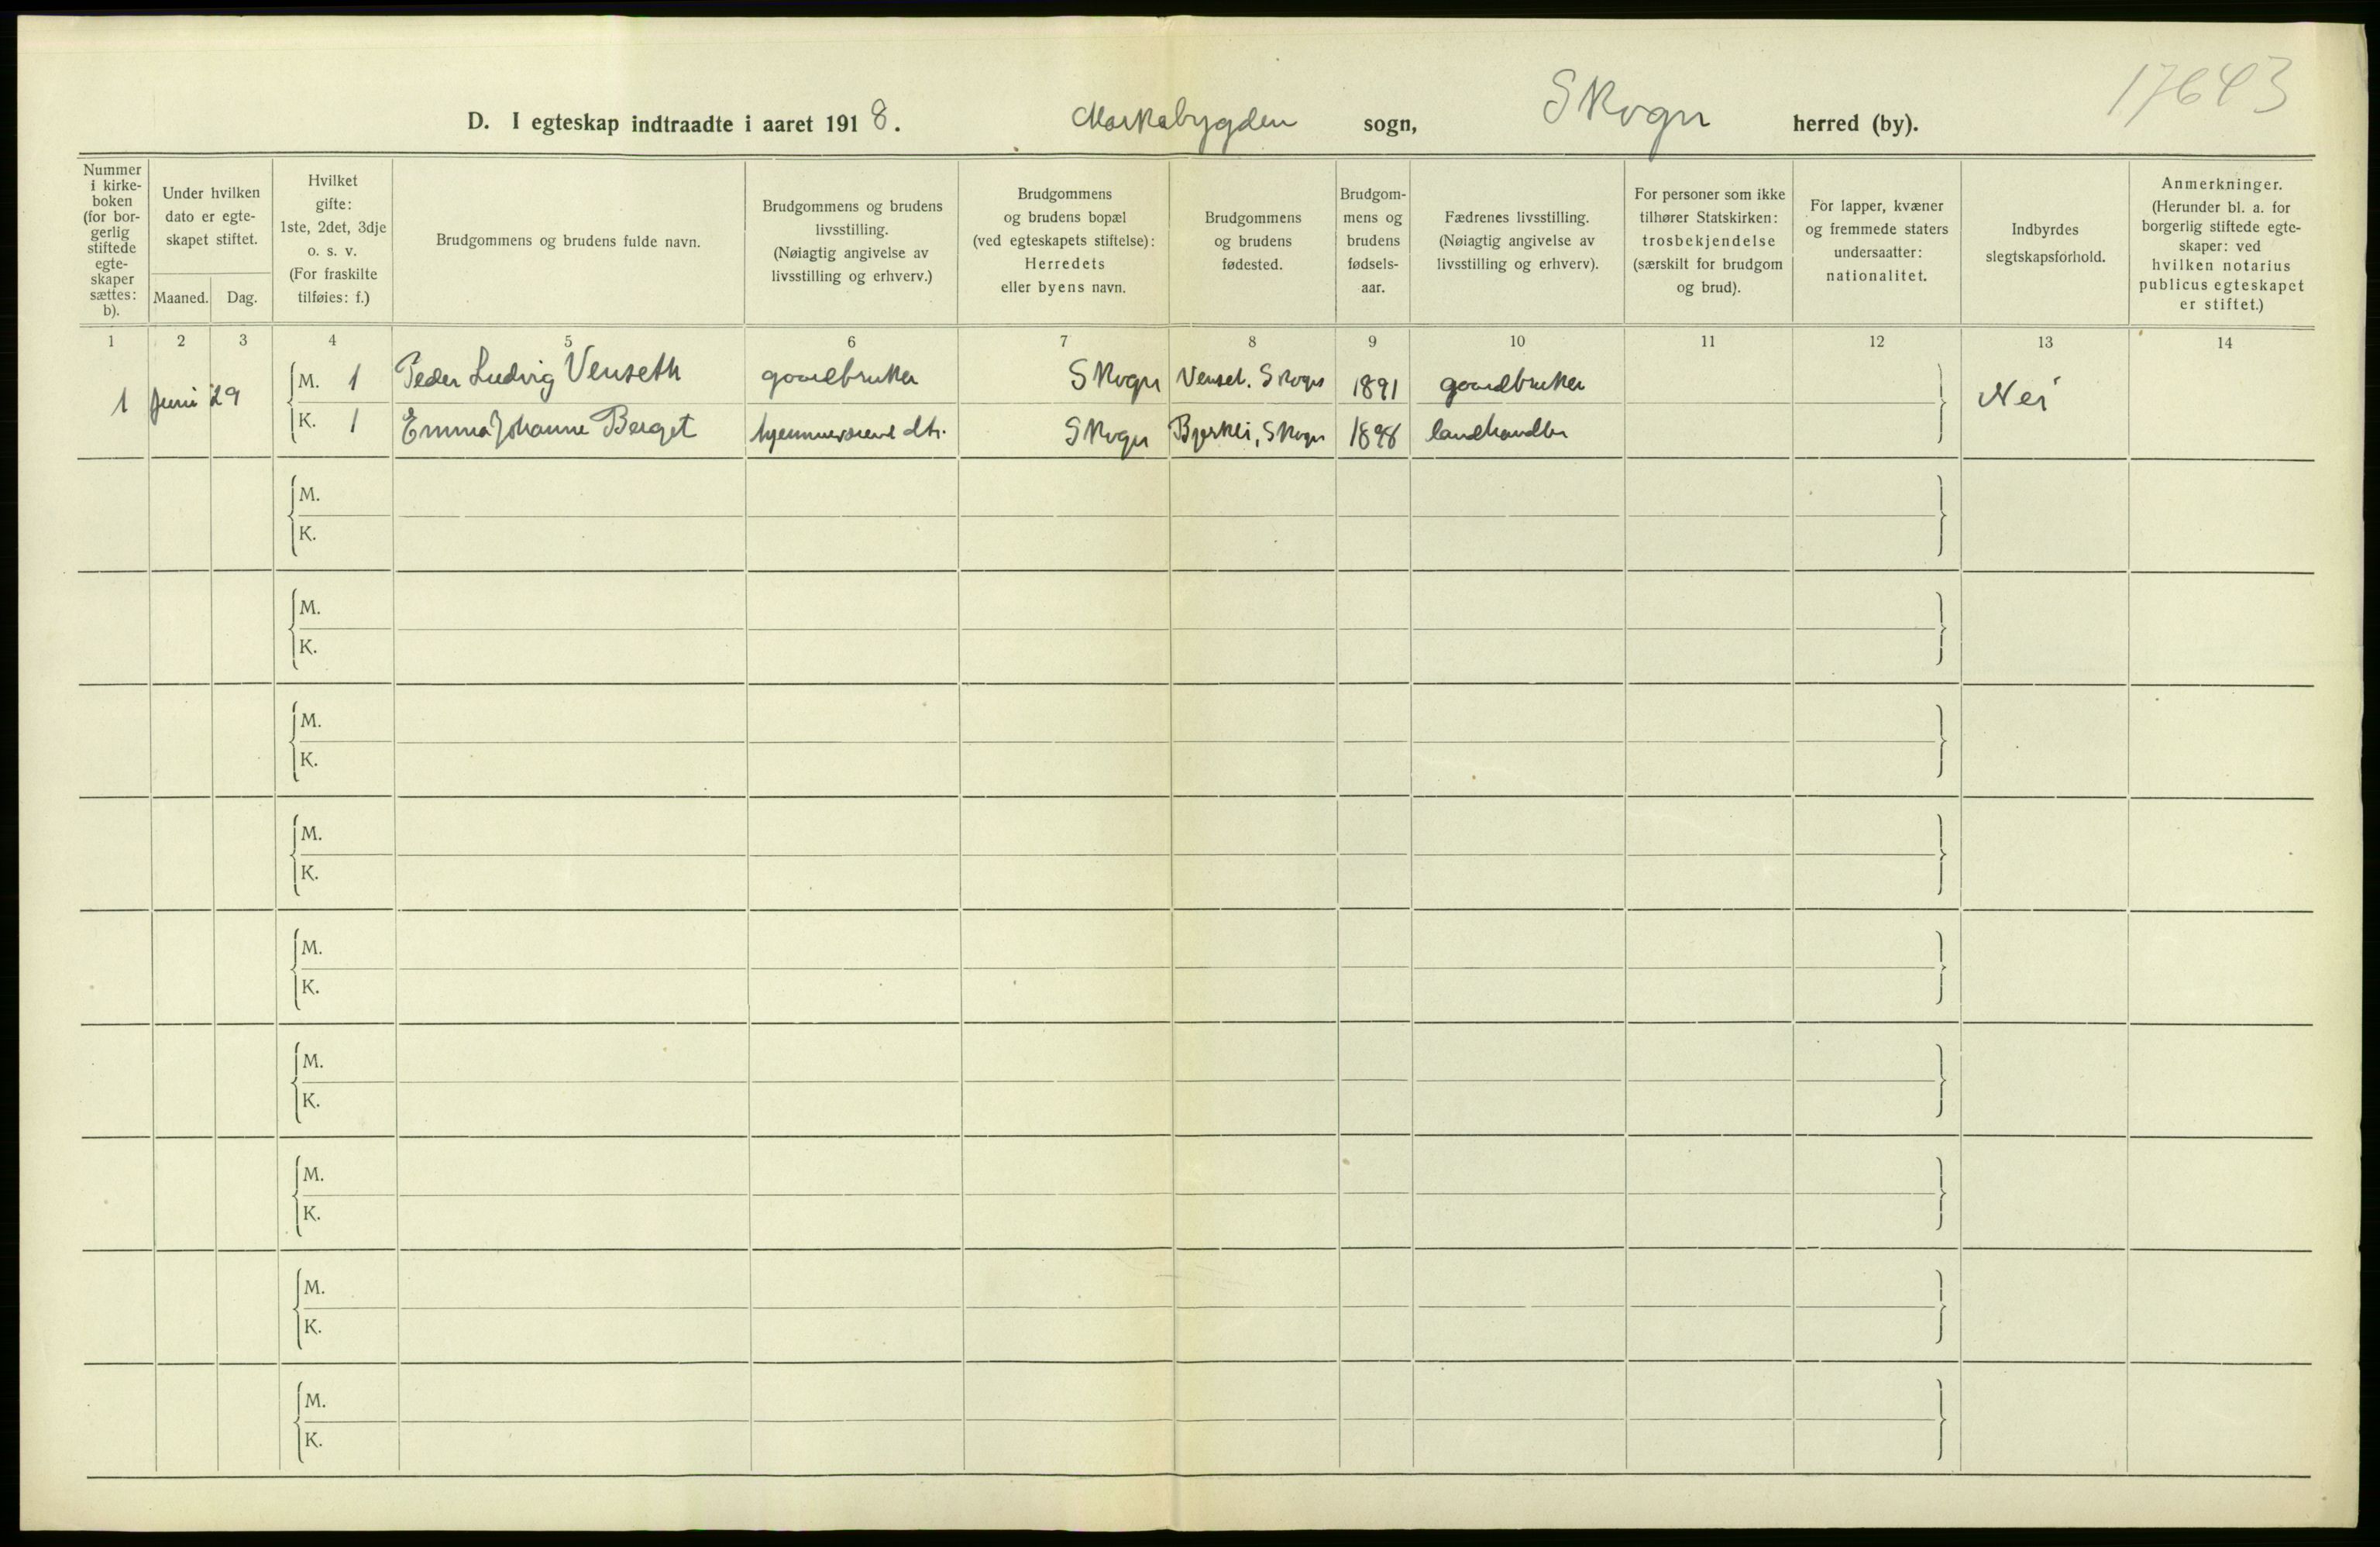 17643
D. I egteskap indtraadte i aaret 1918. Markabygden sogn, Skogn herred (by).
Nummer i kirke-boken (for bor-gerlig stiftede egte-skaper sættes: b).
Under hvilken dato er egte-skapet stiftet.
Maaned. Dag.
Hvilket gifte: 1ste, 2det, 3dje o. s. v. (For fraskilte tilføies: f.)
Brudgommens og brudens fulde navn.
Brudgommens og brudens livsstilling. (Nøiagtig angivelse av livsstilling og erhverv.)
Brudgommens og brudens bopæl (ved egteskapets stiftelse): Herredets eller byens navn.
Brudgommens og brudens fødested.
Brudgom-mens og brudens fødsels-aar.
Fædrenes livsstilling. (Nøiagtig angivelse av livsstilling og erhverv).
For personer som ikke tilhører Statskirken: trosbekjendelse (særskilt for brudgom og brud).
For lapper, kvæner og fremmede staters undersaatter: nationalitet.
Indbyrdes slegtskapsforhold.
Anmerkninger. (Herunder bl. a. for borgerlig stiftede egte-skaper: ved hvilken notarius publicus egteskapet er stiftet.)
1 2 3 4 5 6 7 8 9 10 11 12 13 14
1 Juni 29 M. 1 Peder Ludvig Venseth gaardbruker Skogn Venset. Skogn 1891 gaardbruker Nei
K. 1 Emma Johanne Berget hjemmeværend dtr. Skogn Bjerkli, Skogn 1898 landhandler
M.
K.
M.
K.
M.
K.
M.
K.
M.
K.
M.
K.
M.
K.
M.
K.
M.
K.